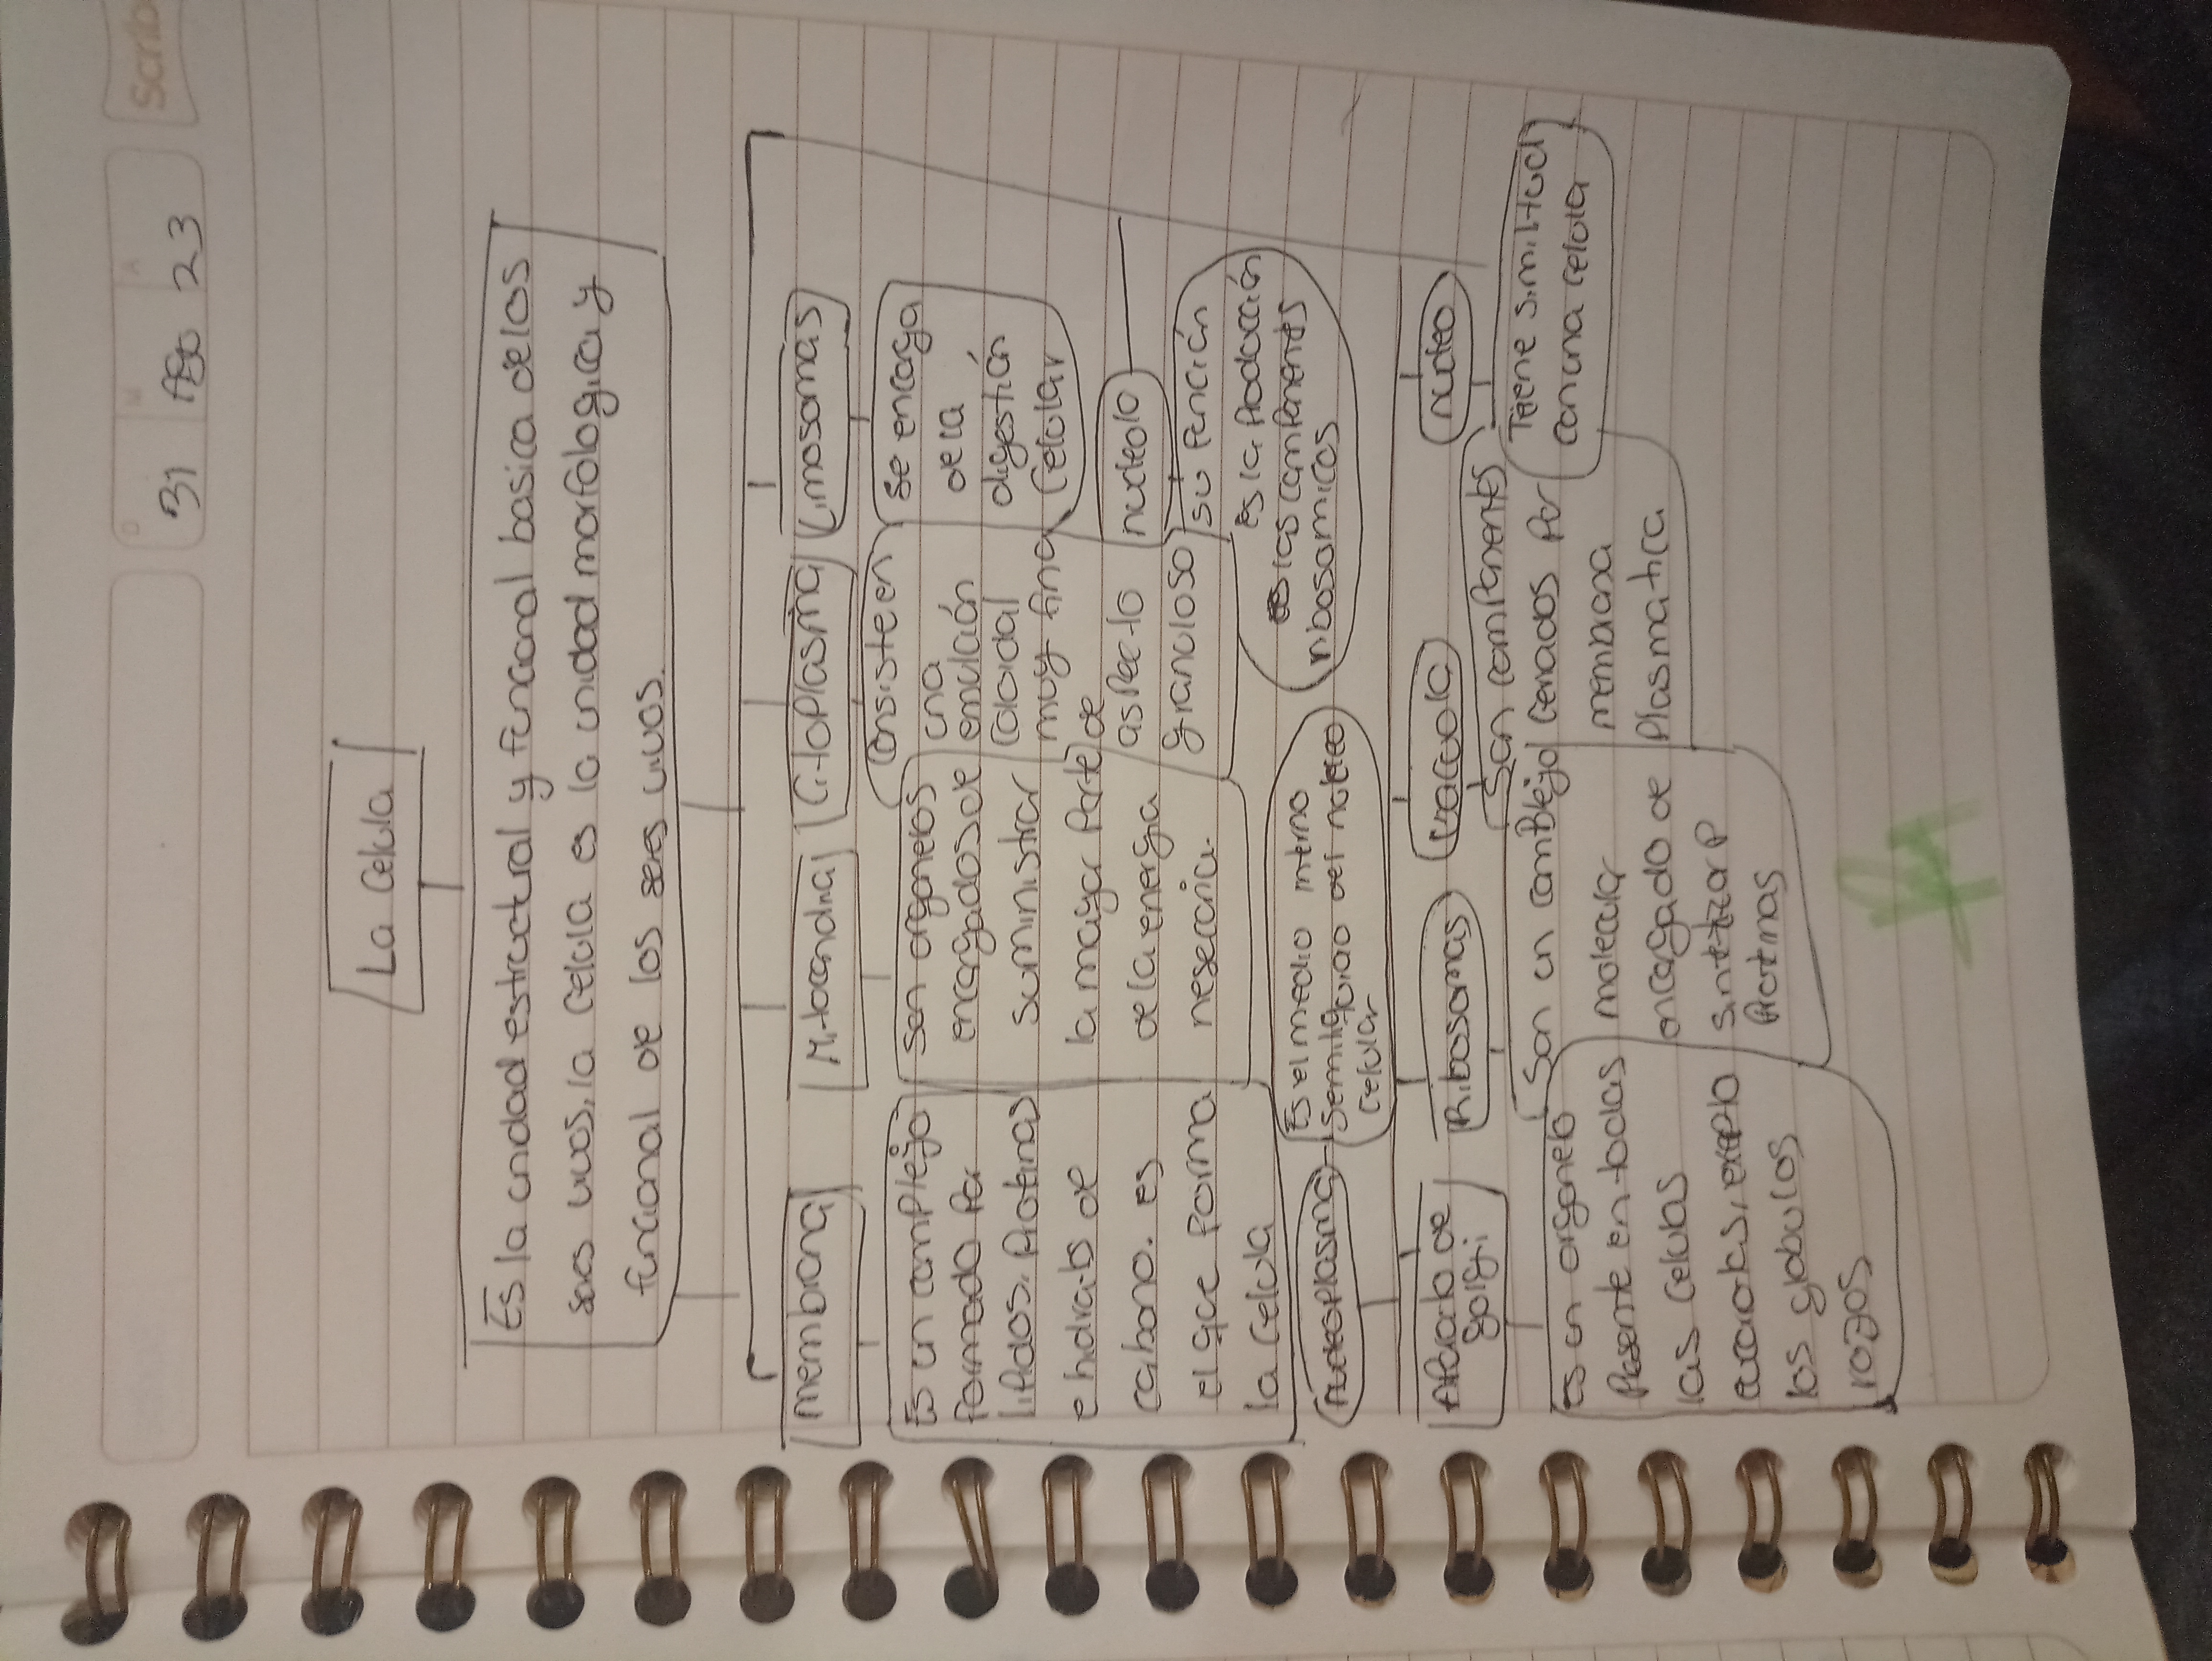 Scrib
D M A
31 Ago 23
La Celula
Es la unidad estructural y funcional basica de los
seres vivos, la celula es la unidad morfologica y
funcional de los seres vivos.
membrana
Mitocondria
Citoplasma
Limosomas
Es un complejo
formado por
lipidos, Proteinas
e hidratos de
carbono. es
el que forma
la celula
Son organelos
encargados de
suministrar
la mayor parte
de la energia
nesecaria.
Consiste en
una
emulación
coloidal
muy fina
de
aspecto
granuloso
se encarga
de la
digestión
Celular
nucleolo
su función
es la Producción
de los componentes
ribosomicos
nucleoplasma
Es el medio interno
semiliquido del nucleo
celular
Aparato de
golgi
Ribosomas
Vacuola
nucleo
Es un organelo
Presente en todas
las celulas
eucariotas, excepto
los globulos
rojos
Son un complejo
molecular
encargado de
sintetizar P
Proteinas
Son componentes
Cerrados Por
membrana
Plasmatica
Tiene similitud
con una celula